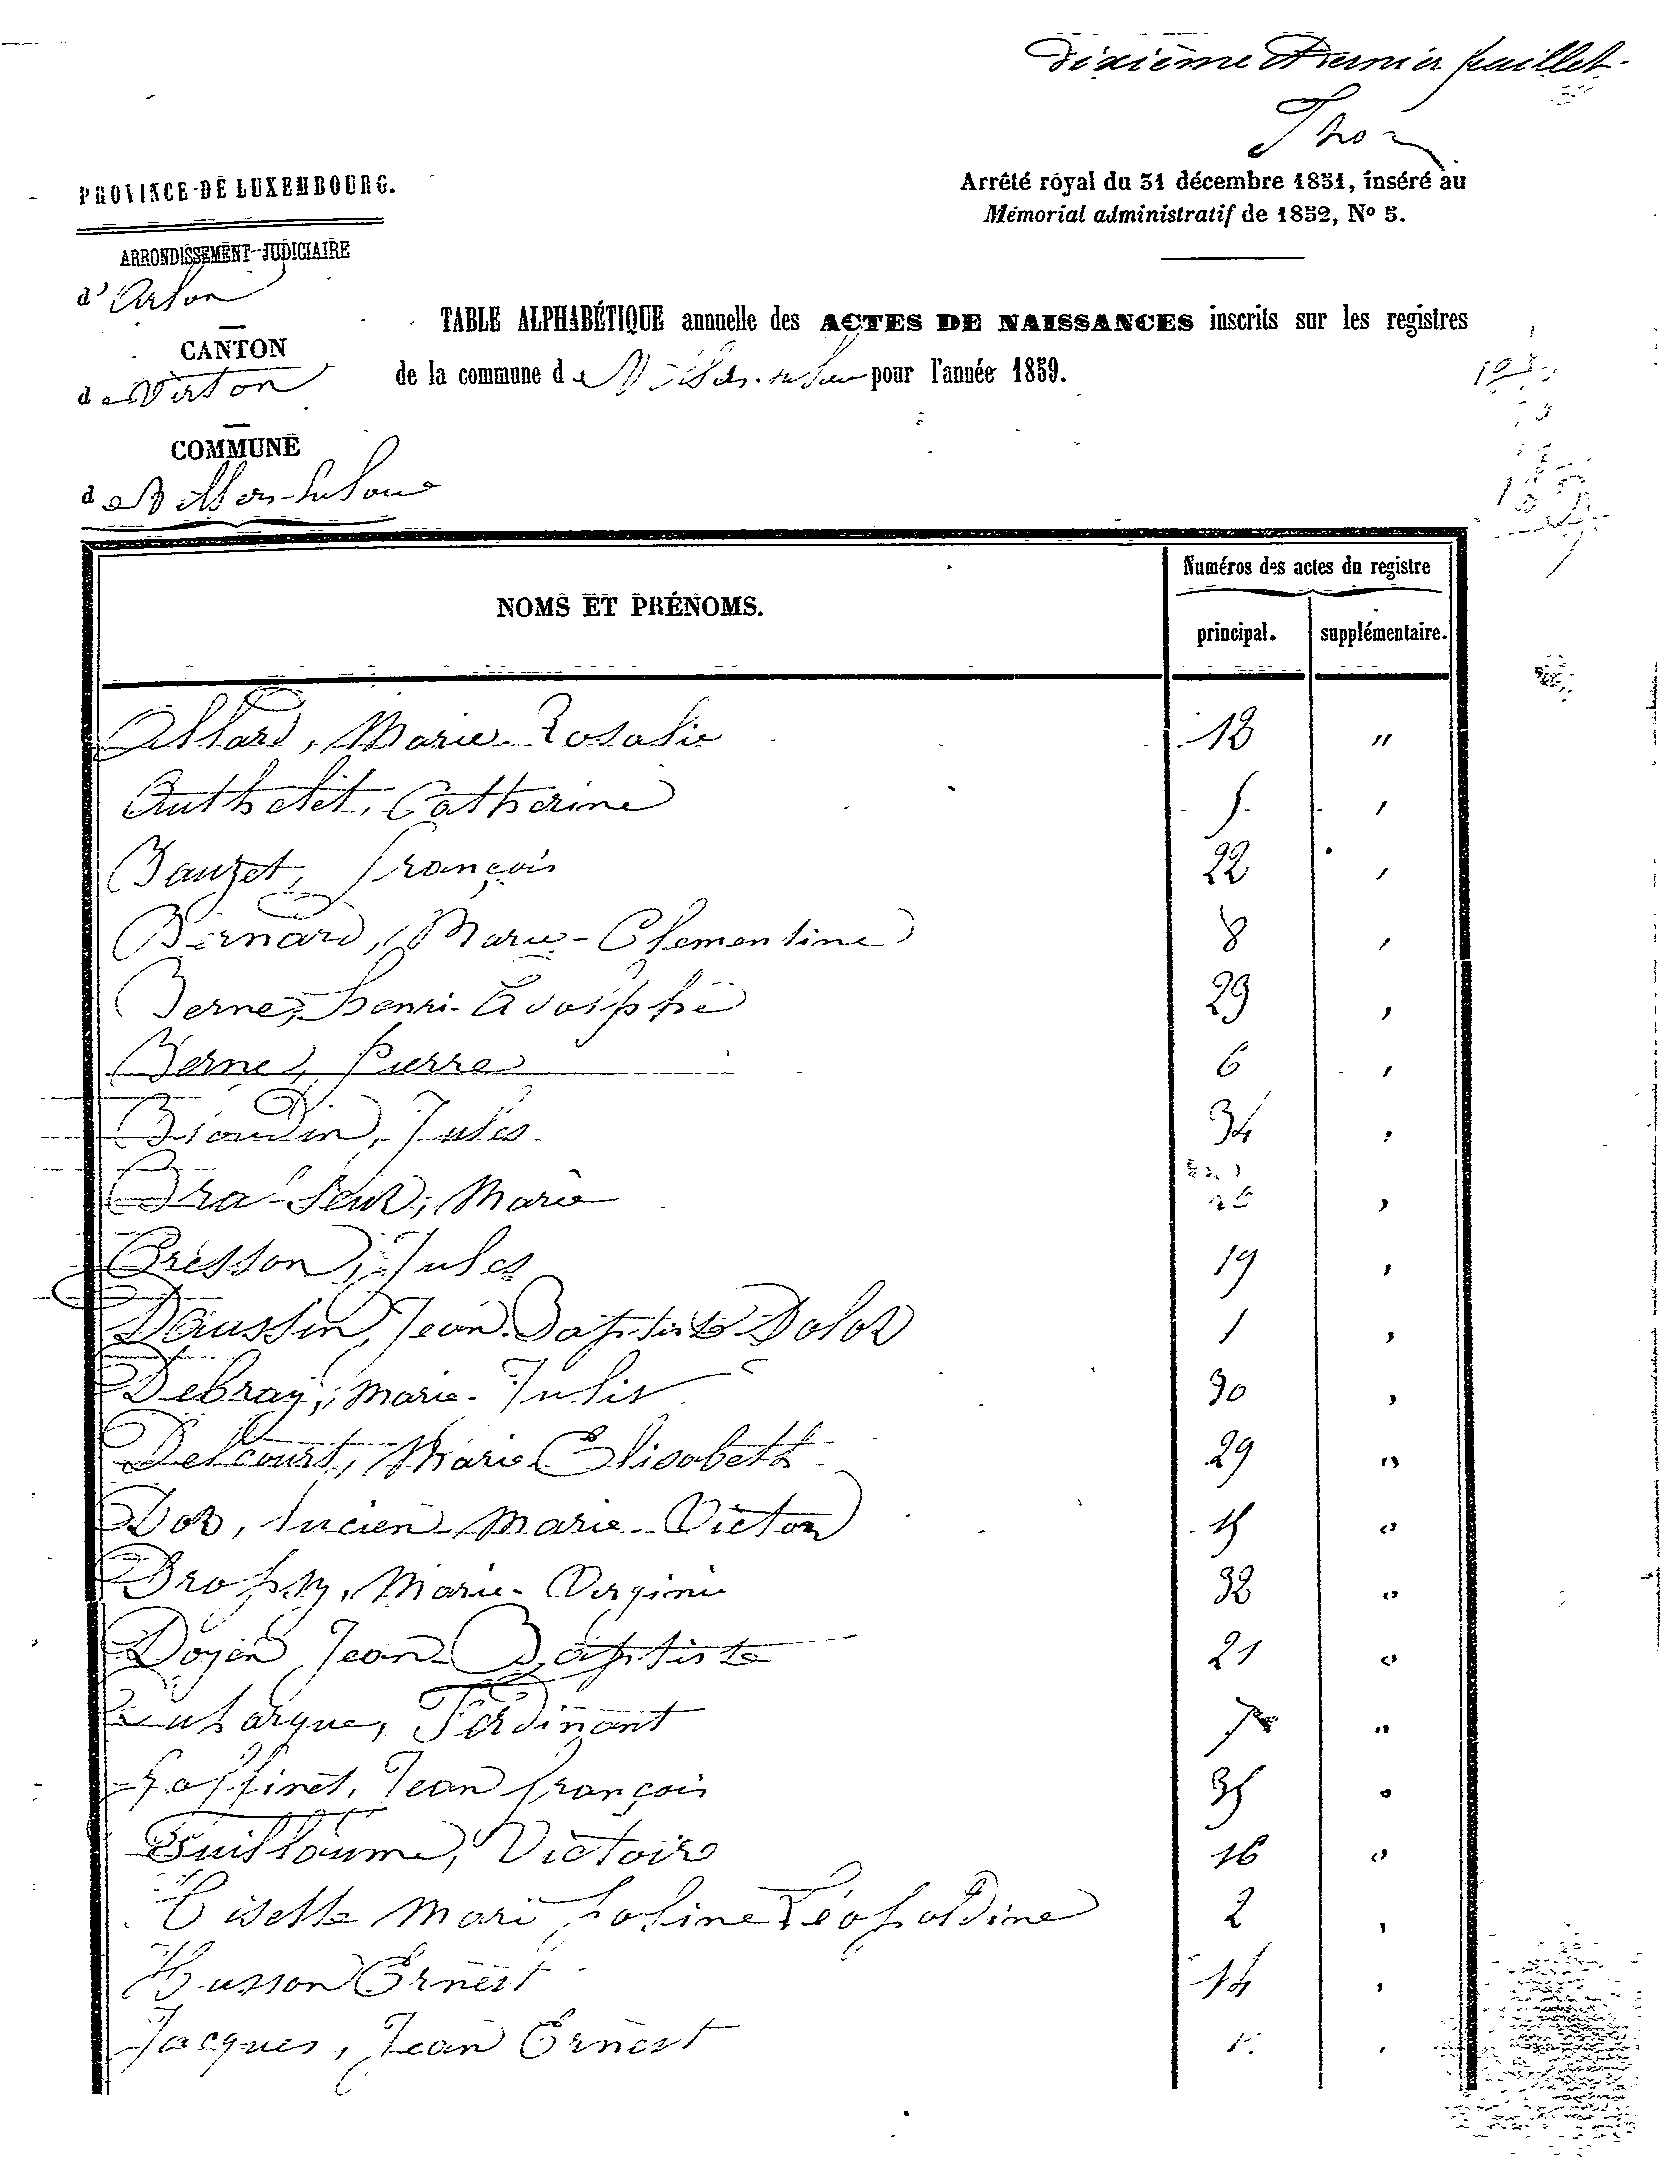 Dixième et dernier feuillet.
PROVINCE DE LUXEMBOURG.
Arrêté royal du 31 décembre 1851, inséré au
Mémorial administratif de 1852, No 5.
ARRONDISSEMENT JUDICIAIRE
d'Arlon
CANTON
de Virton
COMMUNE
de Villers-la-Loue
TABLE ALPHABÉTIQUE annuelle des ACTES DE NAISSANCES inscrits sur les registres
de la commune de Villers-la-Loue pour l'année 1859.
NOMS ET PRÉNOMS.
Numéros des actes du registre
principal. supplémentaire.
Allard, Marie-Rosalie 18 "
Authelet, Catherine 5 ,
Bauzet, François 22 ,
Bernard, Marie-Clementine 8 ,
Berne, henri-Adolphe 23 ,
Berne, Pierre 6 ,
Bioudin, Jules 34 ,
Bra-Seur, Marie ,
Bresson, Jules 19 ,
Daussin, Jean-Baptiste 1 ,
Debray, Marie-Julie 30 ,
Delcourt, Marie Elisabeth 29 "
Dor, Lucien-Marie-Victor 15 "
Dropsy, Marie-Virginie 32 "
Doyen Jean-Baptiste 21 "
Ferdinant 7 "
Goffinet, Jean françois 35 "
Guillaume, Victoire 16 "
Léopoldine 2 ,
Husson Ernest 14 ,
Jacques, Jean Ernest